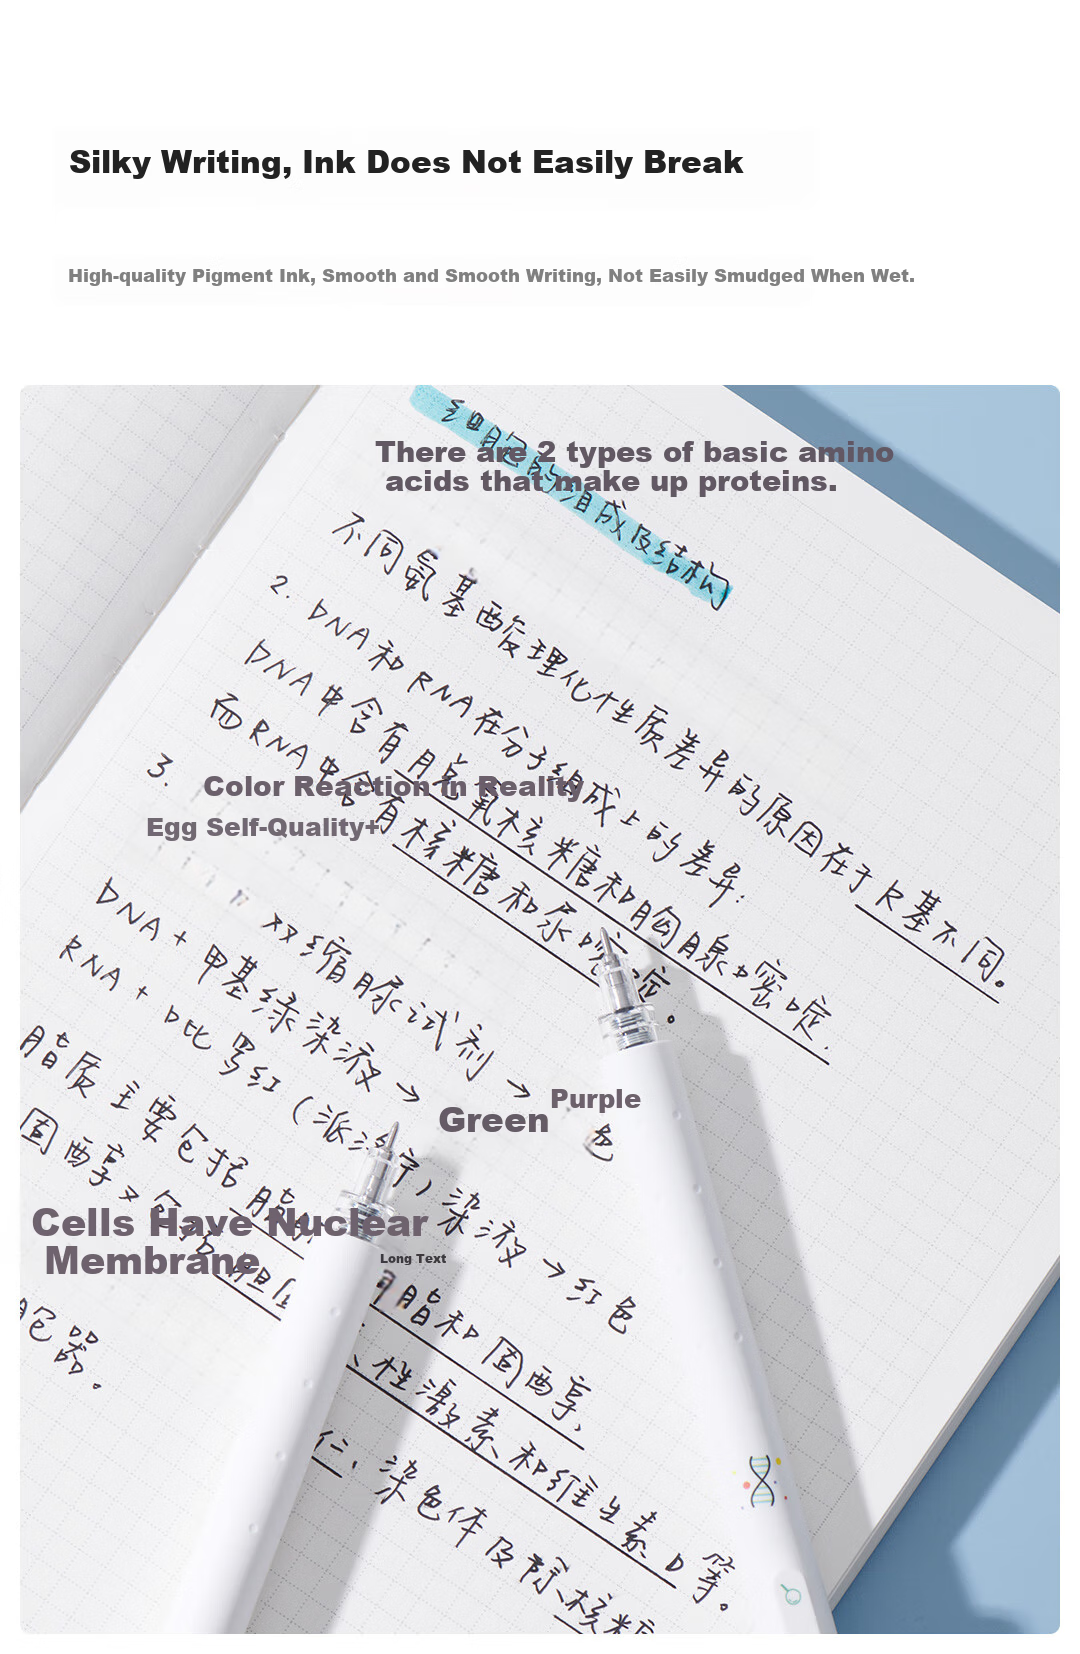 Silky Writing, Ink Does Not Easily Break
High-quality Pigment Ink, Smooth and Smooth Writing, Not Easily Smudged When Wet.
细胞的组成及结构
There are 2 types of basic amino
acids that make up proteins.
不同氨基酸理化性质差异的原因在于R基不同。
2. DNA和RNA在分子组成上的差异:
DNA中含有脱氧核糖和胸腺嘧啶.
而RNA中含有核糖和尿嘧啶。
3.
Color Reaction in Reality
Egg Self-Quality+
双缩脲试剂 →
Purple
色
DNA + 甲基绿染液 →
Green
RNA + 吡罗红(派洛宁)染液 → 红色
脂质主要包括脂
脂和固醇,
固醇又包括胆
、性激素和维生素D等。
Cells Have Nuclear
Membrane
Long Text
胞器。
仨、染色体及除核糖